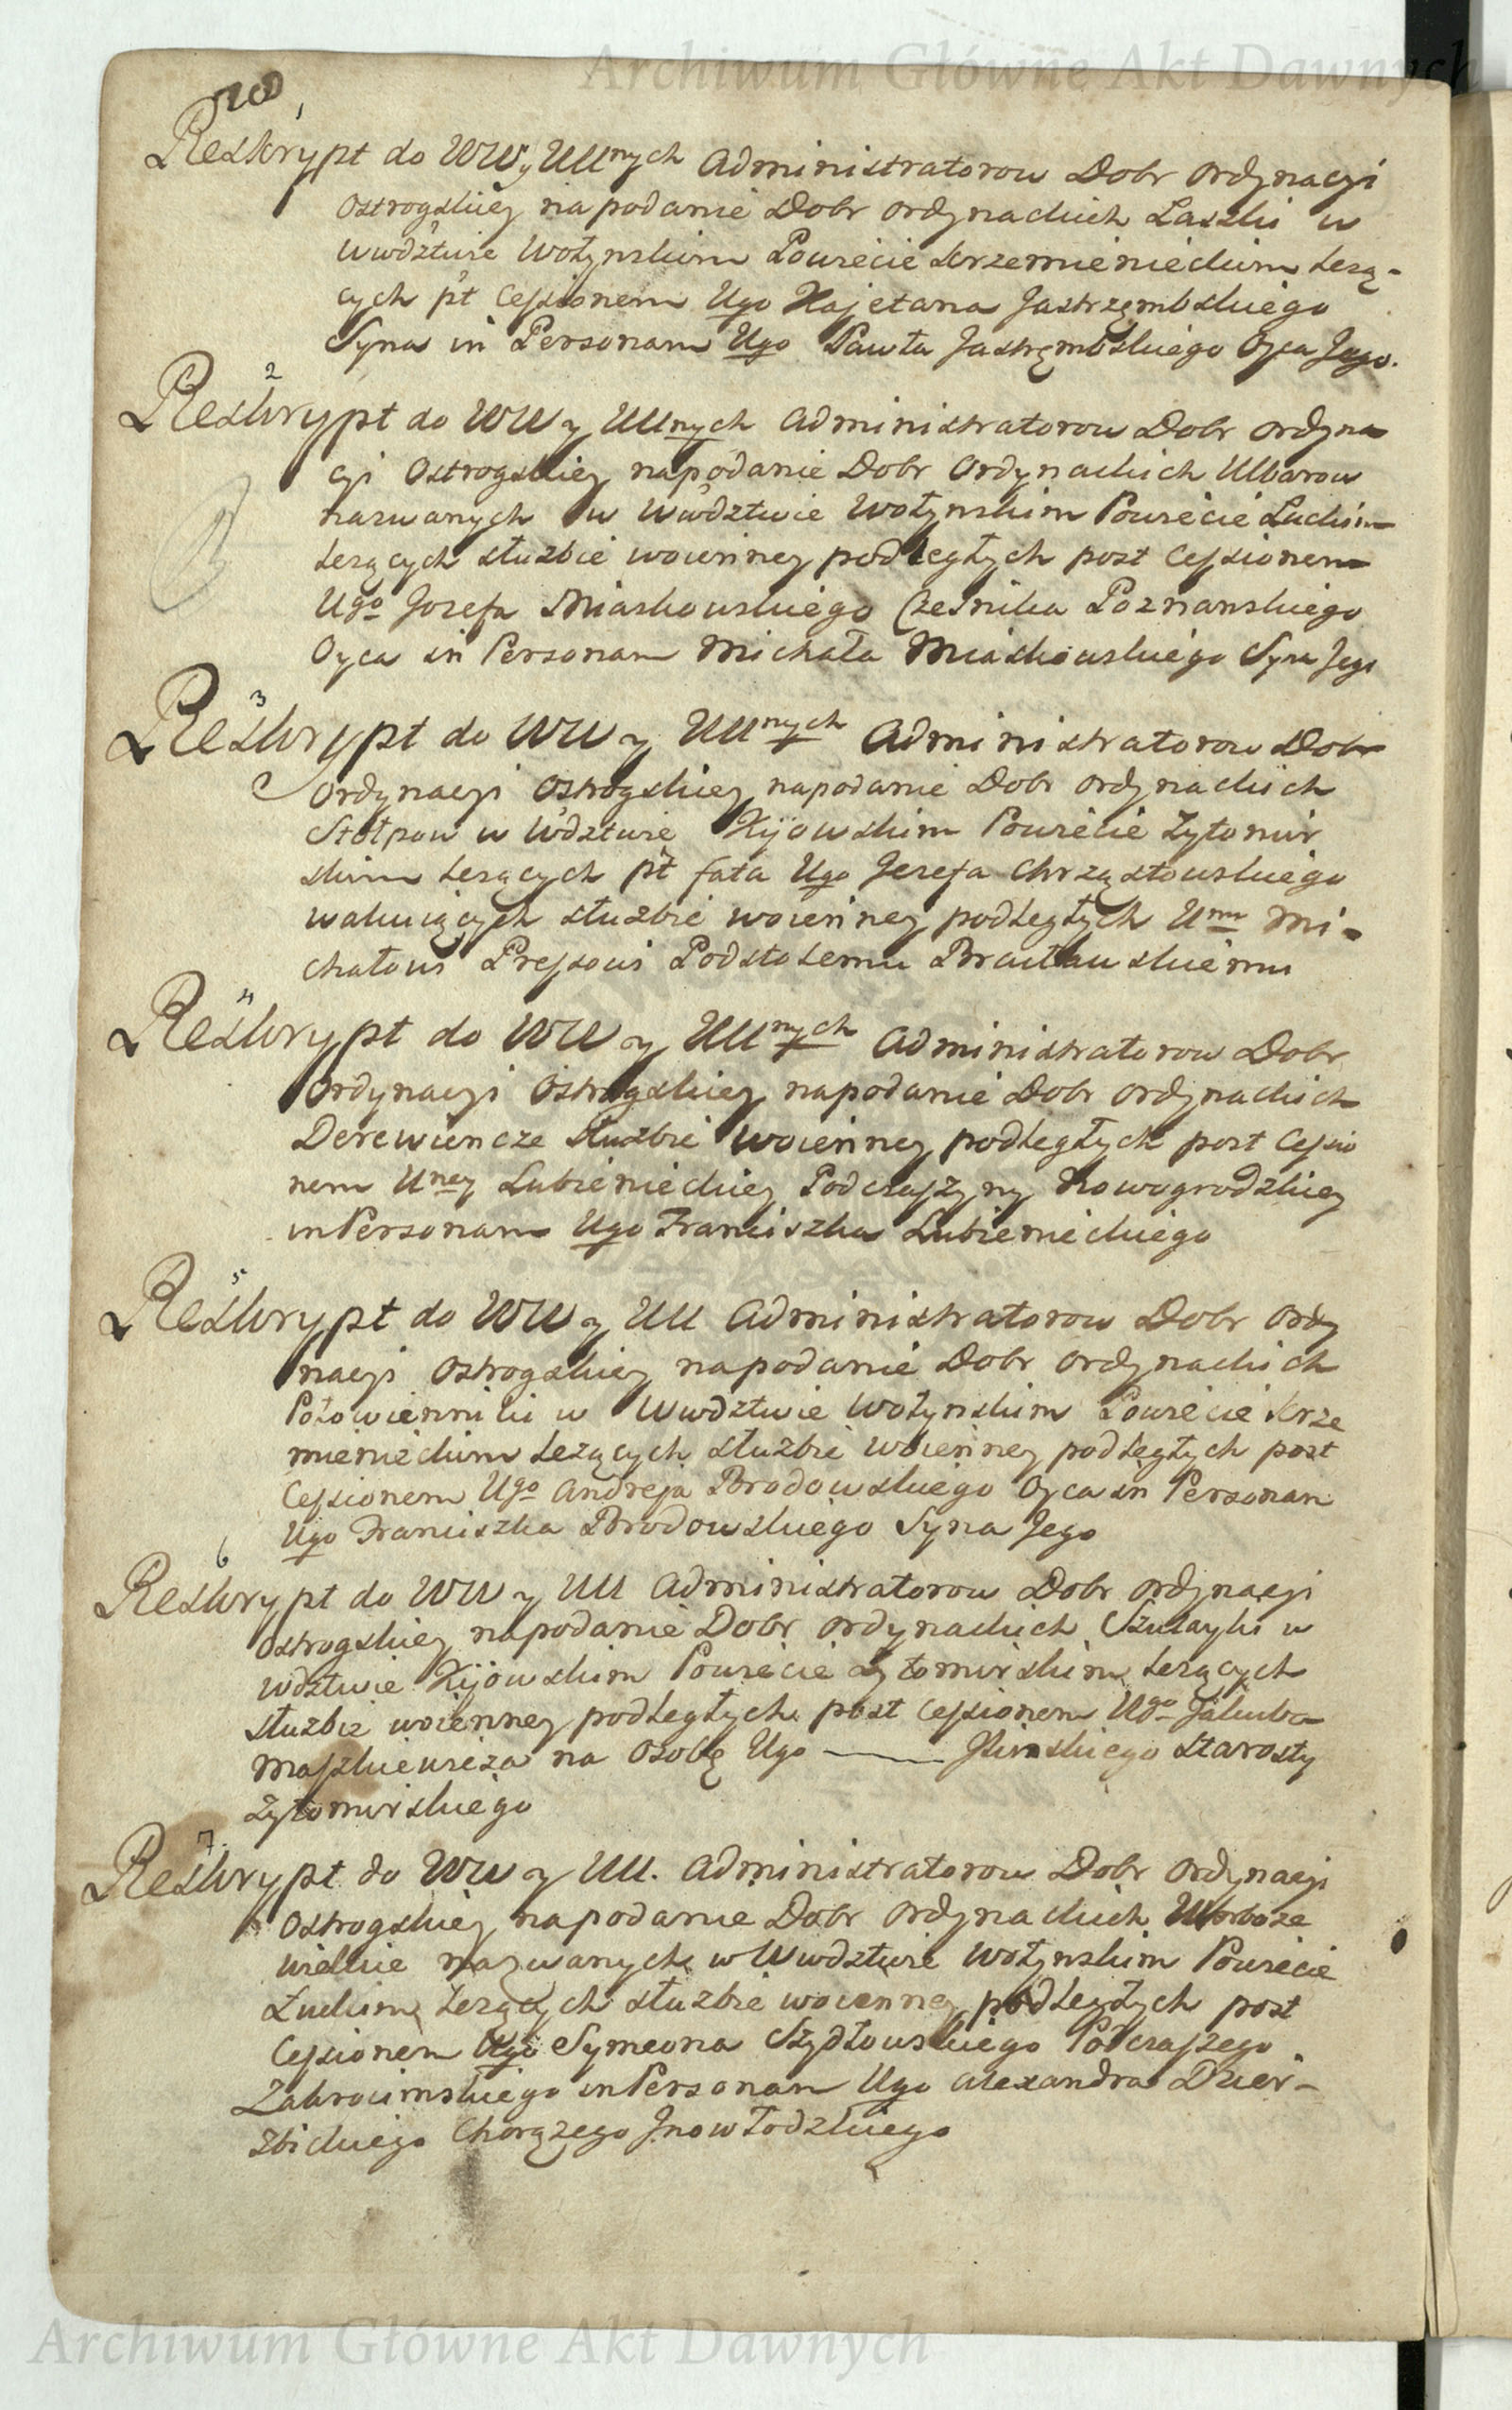 Archiwum Główne Akt Dawnych
700
1
Reskrypt do WW y UUnych Administratorow Dobr Ordynacyi
Ostrogskiey na podanie Dobr Ordynackich Laszki w
Wwdztwie Wołynskim Powiecie Krzemienieckim leżą-
cych pt Cessionem Ugo Kajetana Jastrzęmbskiego
Syna in Personam Ugo Pawła Jastrzęmbskiego Oyca Jego.
2
Reskrypt do WW y UUnych Administratorow Dobr Ordyna
cyi Ostrogskiey na podanie Dobr Ordynackich Ulbarow
nazwanych w Wwdztwie Wołynskim Powiecie Luckim
leżących służbie woienney podległych post Cessionem
Ugo Jozefa Miaskowskiego Cześnika Poznanskiego
Oyca in Personam Michała Miaskowskiego Syna Jego
3
Reskrypt do WW y UUnych Administratorow Dobr
Ordynacyi Ostrogskiey na podanie Dobr Ordynackich
Stołpow w Wdztwie Kijowskim Powiecie Żytomir
skim leżących pt fata Ugo Jozefa Chrząstowskiego
wakuiących służbie woienney podległych Umu Mi-
chałowi Pressowi Podstolemu Bracławskiemu
4
Reskrypt do WW y UUnych Administratorow Dobr
Ordynacyi Ostrogskiey na podanie Dobr Ordynackich
Derewiencze służbie woienney podległych post Cessio
nem Uney Lubienieckiey Podczaszyny Nowogrodzkiey
in Personam Ugo Franciszka Lubienieckiego
5
Reskrypt do WW y UU Administratorow Dobr Ordy
nacyi Ostrogskiey na podanie Dobr Ordynackich
Połowienniki w Wwdztwie Wołynskim Powiecie Krze
mienieckim leżących służbie woienney podległych post
Cessionem Ugo Andreja Brodowskiego Oyca in Personam
Ugo Franciszka Brodowskiego Syna Jego
6
Reskrypt do WW y UU Administratorow Dobr Ordynacyi
Ostrogskiey na podanie Dobr Ordynackich Szulayki w
Wdztwie Kijowskim Powiecie Żytomirskim leżących
służbie woienney podległych post Cessionem Ugo Jakuba
Maszkiewicza na Osobę Ugo ——— Ilinskiego Starosty
Żytomirskiego
7.
Reskrypt do WW y UU. Administratorow Dobr Ordynacyi
Ostrogskiey na podanie Dobr Ordynackich Worboże
wielkie nazwanych w Wwdztwie Wołynskim Powiecie
Łuckim leżących służbie woienney podległych post
Cessionem Ugo Symeona Szydłowskiego Podczaszego
Zakrocimskiego in Personam Ugo Alexandra Dzier-
zbickiego Chorążego Inowłodzkiego
Archiwum Główne Akt Dawnych